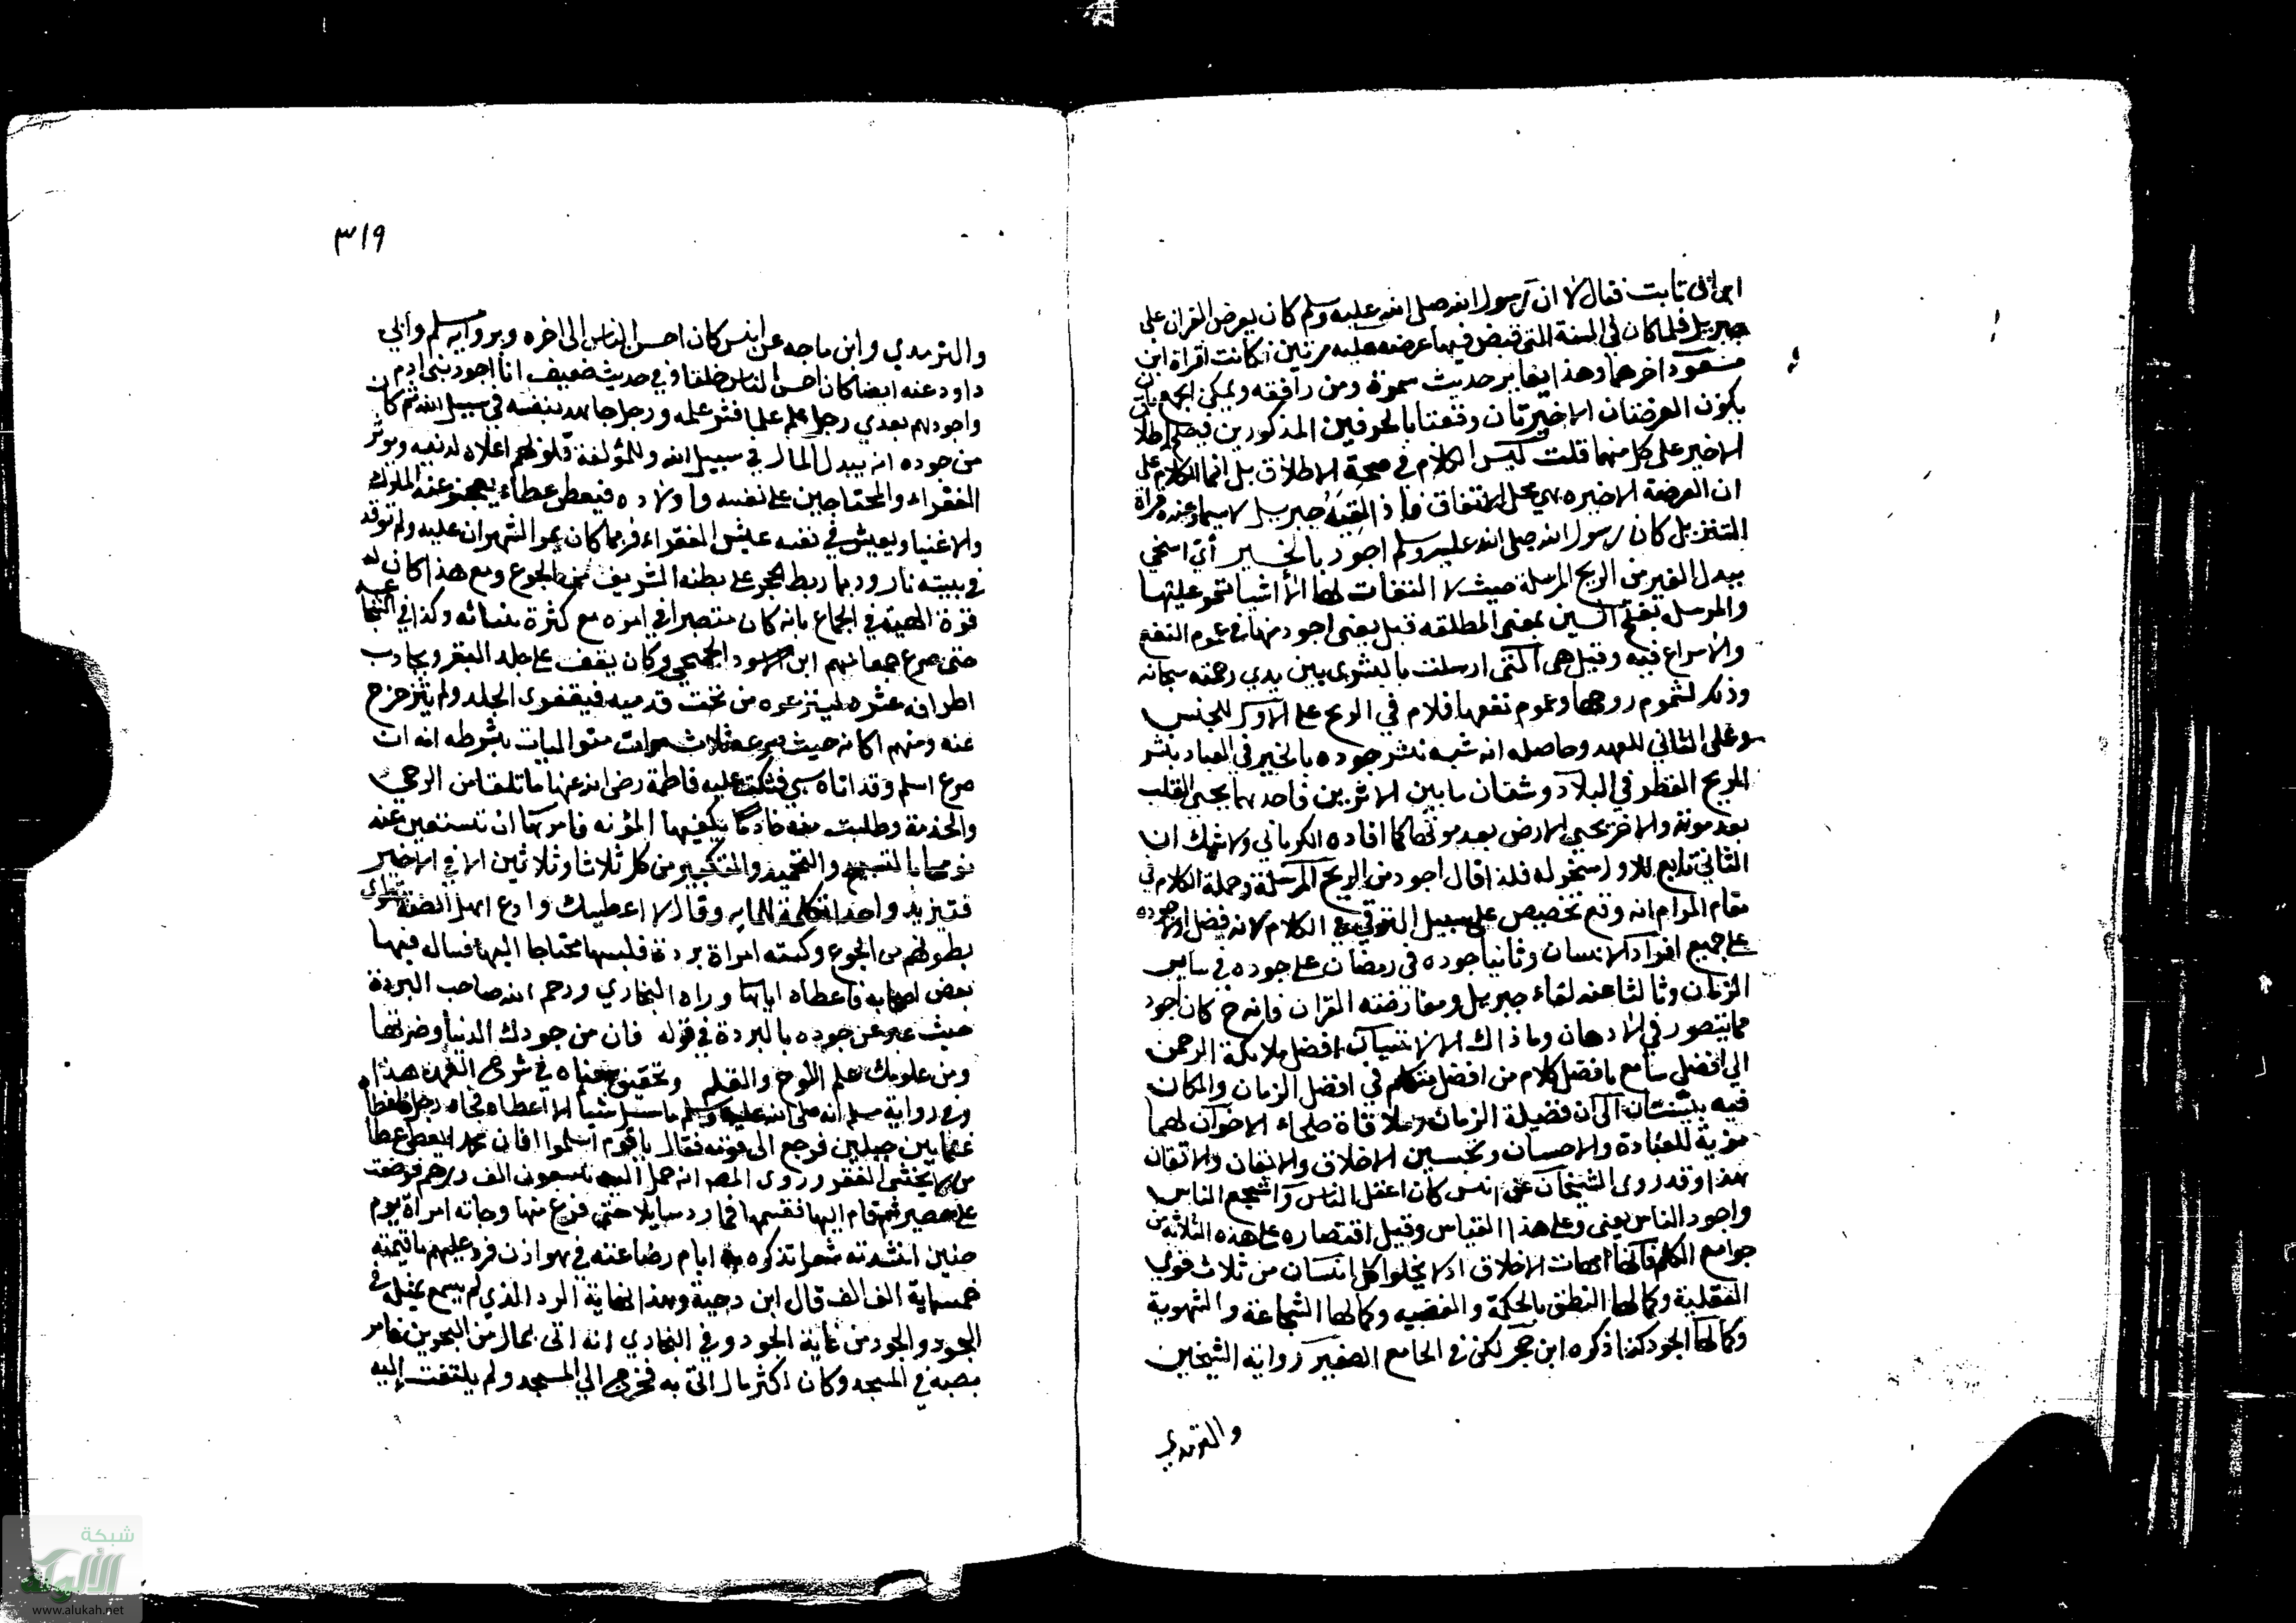 ابن ثابت فقال لا ان رسول الله صلى الله عليه وسلم كان يعرض القران على
جبريل فلما كان في السنة التي قبض فيها عرضه عليه مرتين فكانت اقراة ابن
مسعود اخرهما وهذا يغاير حديث سمرة ومن وافقه ويمكن الجمع بان
يكون العرضتان الاخيرتان وقعتا بالحرفين المذكورين فيصح اطلاق
الاخير على كل منهما قلت ليس الكلام في صحة الاطلاق بل انما الكلام على
ان العرضة الاخيره هي محل الاتفاق فاذا لقيه جبريل لا سيما وعنده قراة
التنزيل كان رسول الله صلى الله عليه وسلم اجود بالخير أي اسخى
ببذل الخير من الريح المرسلة حيث لا التفات لها الى أشيا تمر عليها
والمرسل بفتح السين بمعنى المطلقه قيل يعني اجود منها في عموم النفع
والاسراع فيه وقيل هي التي ارسلت بالبشرى بين يدي رحمته سبحانه
وذلك لشموم روحها وعموم نفعها فلام في الريح على الاول للجنس
وعلى الثاني للعهد وحاصله انه شبه نشر جوده بالخير في العباد بنشر
الريح القطر في البلاد وشتان ما بين الاثرين فاحدهما يحيى القلب
بعد موته والاخر يحيي الارض بعد موتها كما افاده الكرماني ولا شك ان
الثاني تابع للاول مسخر له فلذا قال اجود من الريح المرسلة وجملة الكلام في
مقام المرام انه وقع تخصيص على سبيل الترقي في الكلام لانه فضل اولا جوده
على جميع افراد الانسان وثانيا جوده في رمضان على جوده في ساير
الزمان وثالثا عند لقاء جبريل ومعارضته القران فانه ح كان اجود
مما يتصور في الاذهان وما ذاك الا لاتيان افضل ملائكة الرحمن
الى افضل سامع بافضل كلام من افضل متكلم في افضل الزمان والمكان
فيه بينتان الى ان فضيلة الزمان وملاقاة صلحاء الاخوان لهما
مزية للعبادة والاحسان وتحسين الاخلاق والايقان والاتقان
هذا وقد روى الشيخان عن انس كان اعقل الناس واشجع الناس
واجود الناس يعني وعلى هذا القياس وقيل اقتصاره على هذه الثلاثة من
جوامع الكلم فانها امهات الاخلاق اذ لا يخلوا كل انسان من ثلاث قوي
العقلية وكمالها النطق بالحكمة والغضبيه وكمالها الشجاعة والشهوية
وكمالها الجود كذا ذكره ابن حجر لكن في الجامع الصغير رواية الشيخين
والترمذي
٣١٩
والترمذي وابن ماجه عن انس كان احسن الناس الى اخره وبرواية مسلم وأبي
داود عنه ايضا كان احسن الناس خلقا وفي حديث ضعيف انا اجود بني ادم
واجودهم بعدي رجل علم علما فنشر علمه ورجل جاهد بنفسه في سبيل الله ثم كان
من جوده انه يبذل المال في سبيل الله وللمؤلفة قلوبهم اعلاء لدينه ويوثر
الفقراء والمحتاجين على نفسه واولاده فيعطى عطاء يعجز عنه الملوك
والاغنيا ويعيش في نفسه عيش الفقراء فربما كان يمر الشهران عليه ولم توقد
في بيته نار وربما ربط الحجر على بطنه الشريف من الجوع ومع هذا كان له
قوة الهية في الجماع بانه كان منتصبرا في امره مع كثرة نسائه وكذا في الشجاعة
حتى صرع جمعا منهم ابن الاسود الجمحي وكان يقف على جلد البقر ويجاذب
اطرافه عشره لينزعوه من تحت قدميه فيتفرى الجلد ولم يتزحزح
عنه ومنهم ركانه حيث صرعه ثلاث مرات متواليات بشرطه انه ان
صرع اسلم وقد اتاه سبي فشكت عليه فاطمة رضي الله عنها ما تلقا من الرحي
والخدمة وطلبت منه خادما يكفيها المؤنه فامرها ان تستعين عند
نومها بالتسبيح والتحميد والتكبير من كل ثلاثا وثلاثين الا في الاخير
فتزيد واحدا تكملة للمايه وقال لا اعطيك وادع اهل الصفة تطوى
بطونهم من الجوع وكسته امراة بردة فلبسها محتاجا اليها فساله فيها
بعض اصحابه فاعطاه اياها رواه البخاري ورحم الله صاحب البردة
حيث عبر عن جوده بالبردة في قوله فان من جودك الدنيا وضرتها
ومن علومك علم اللوح والقلم وتحقيق معناه في شرح العمدة هذا
وفي رواية مسلم انه صلى الله عليه وسلم ما سيل شيئا الا اعطاه فجاه رجل فاعطا
غنما بين جبلين فرجع الى قومه فقال يا قوم اسلموا فان محمدا يعطي عطا
من لا يخشى الفقر وروى المص انه حمل اليه تسعون الف درهم فوضعت
على حصير ثم قام اليها فقسمها فما رد سايلا حتى فرغ منها وجاته امراة يوم
حنين انشدته شعرا تذكره به ايام رضاعته في هوازن فرد عليهم ما قيمته
خمسماية الف الف قال ابن دحية وهذا نهاية الرد الذي لم يسمع بمثله في
الجود والجود من غاية الجود وفي البخاري انه اتى بمال من البحرين فامر
بصبه في المسجد وكان اكثر مال اتى به فخرج الى المسجد ولم يلتفت إليه
شبكة
الألوكة
www.alukah.net